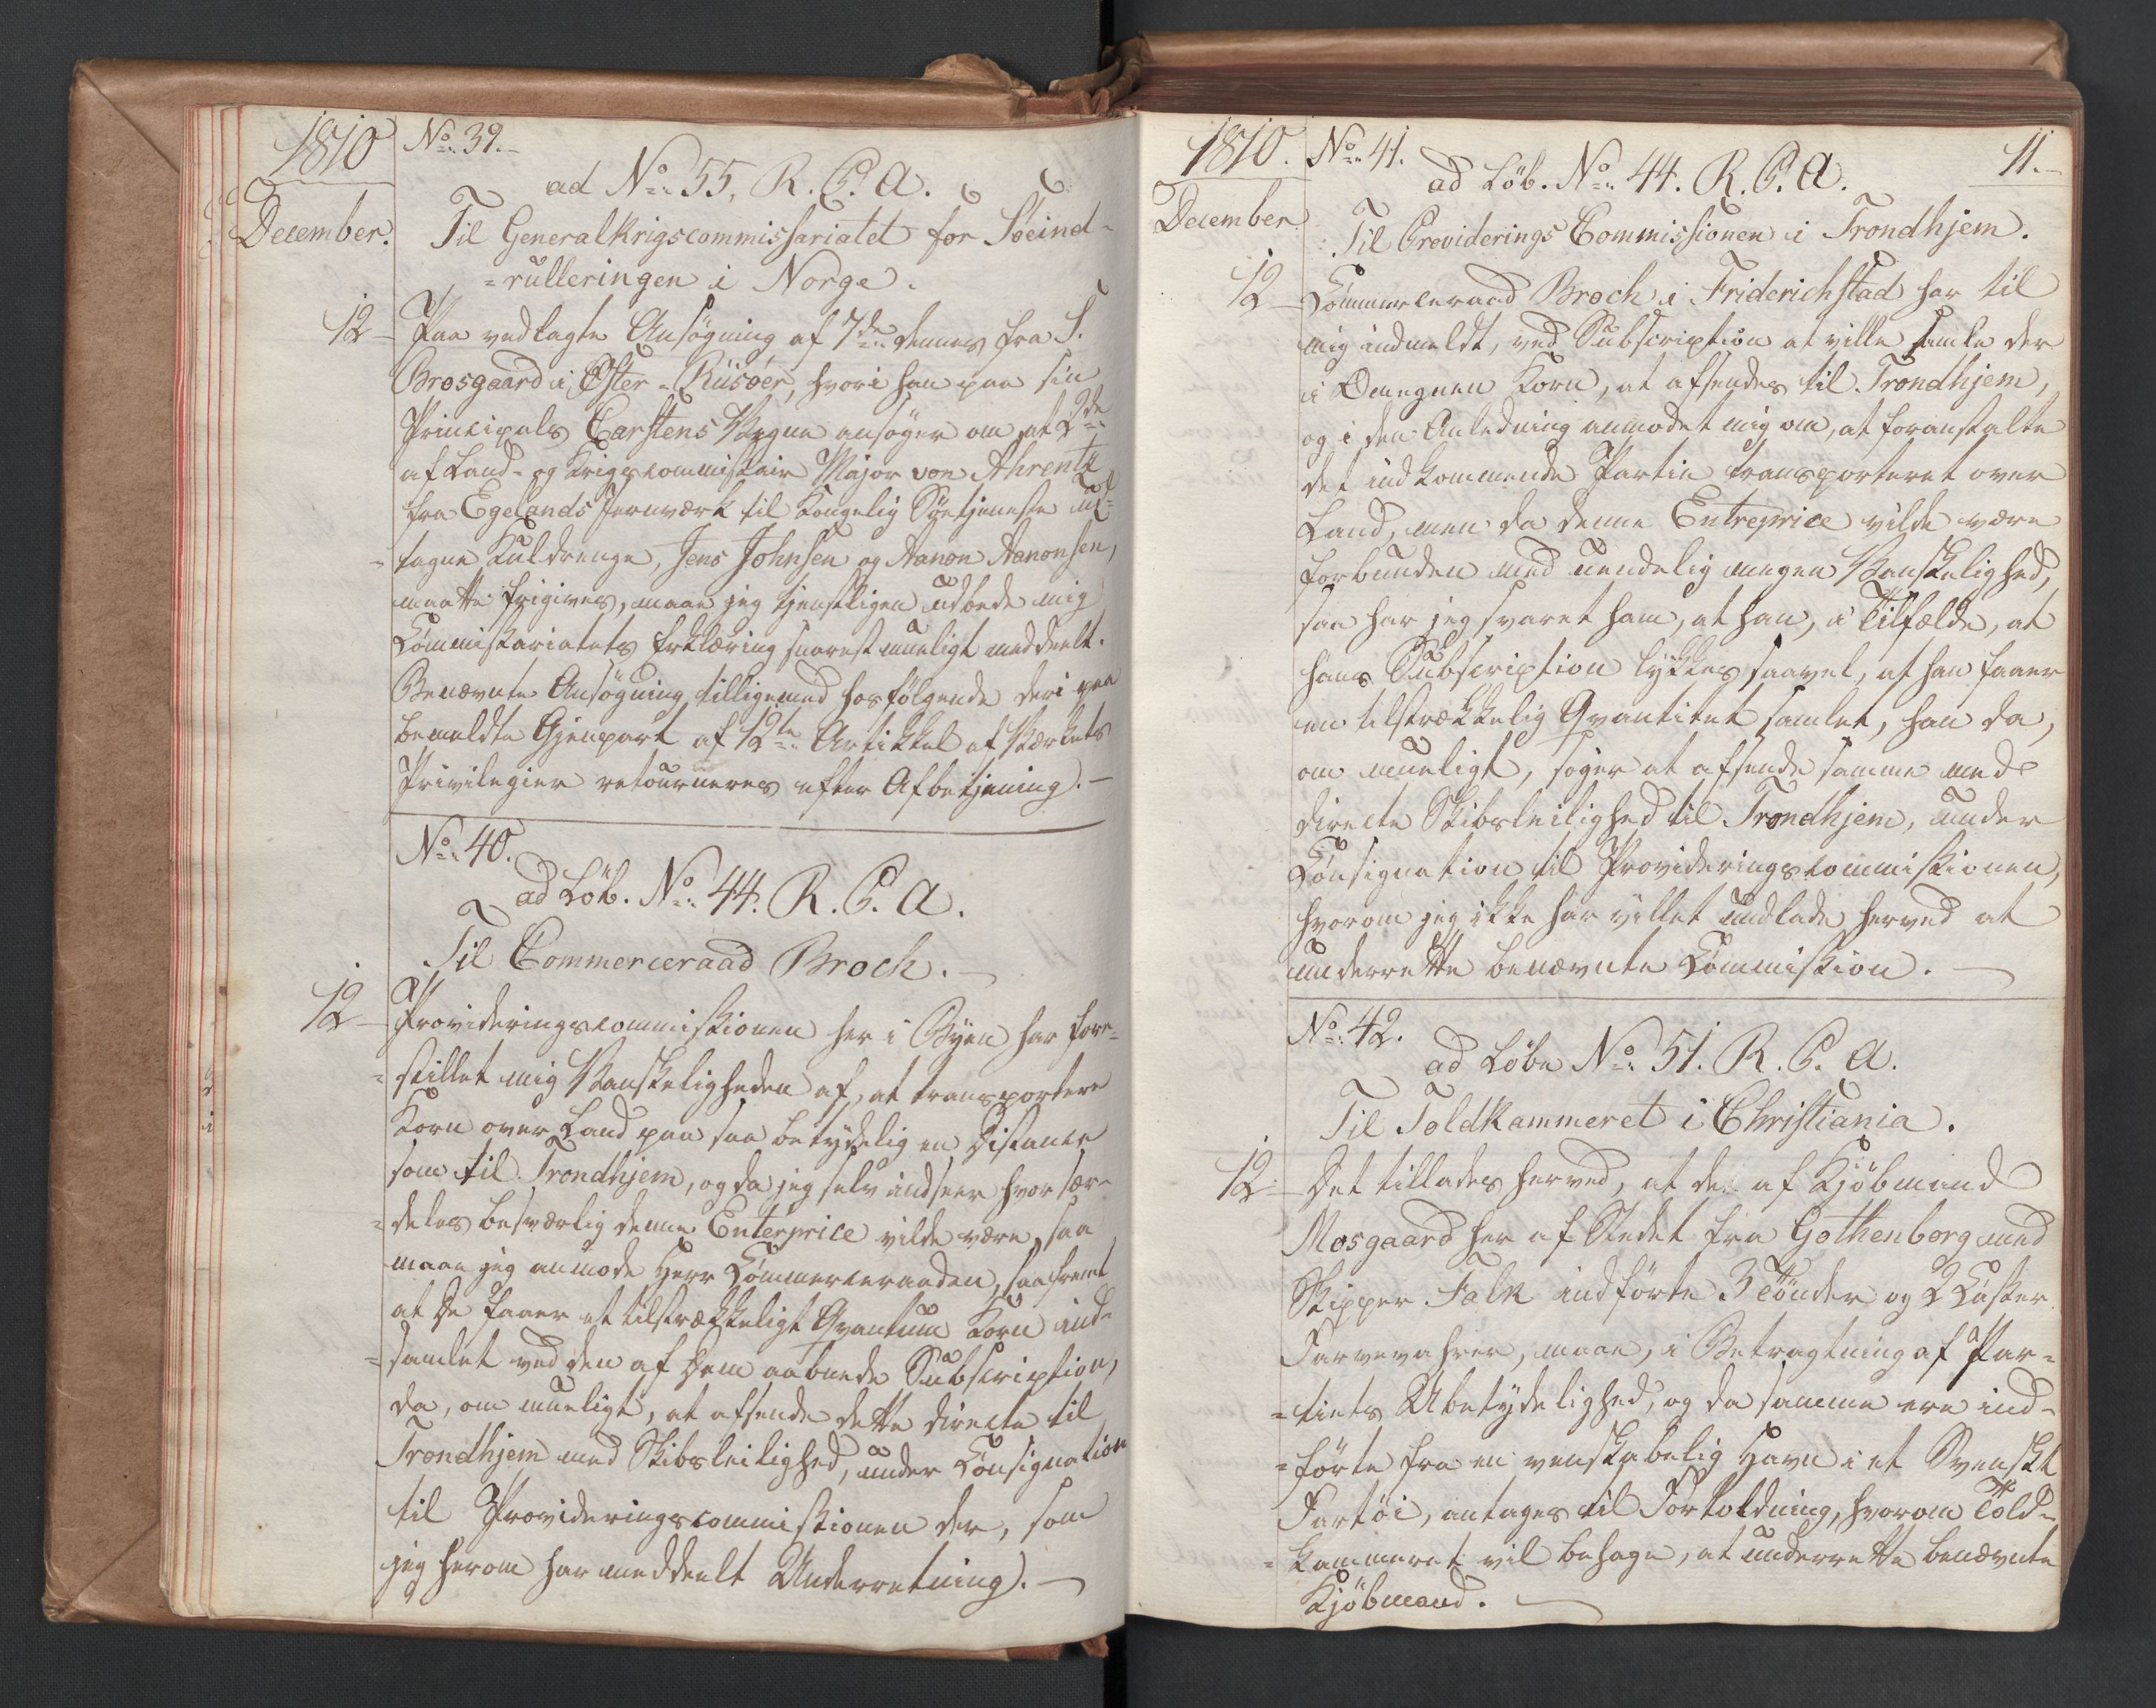 1810
No. 39.
ad No. 55, R. C. A.
December.
Til GeneralKrigscommissariatet for Söeind-
=rulleringen i Norge.
12 Paa vedlagte Ansøgning af 7de dennes fra S.
Brosgaard i Øster-Riisöer, hvori han paa sin
Principals Carstens Vegne ansøger om at 2de
af Land- og Krigscommissair Major von Ahrentz
fra Egelands Jernværk til Kongelig Søetjeneste ud-
=tagne Kuldrenge, Jens Johnsen og Aanon Aanonsen,
maatte frigives, maae jeg tjenstligen udbede mig
Commissariatets Erklæring snarest mueligt meddeelt.
Benævnte Ansøgning tilligemed hosfølgende deri paa
bemeldte Gjenpart af 12te Artikkel af Værkets
Privilegier retourneres efter Afbetjening. —
No. 40.
ad Löb. No. 44. R. C. A.
Til Commerceraad Broch. —
12 Provideringscommissionen her i Byen har fore-
=stillet mig Vanskeligheden af, at transportere
Korn over Land paa saa betydelig en Distance
som til Trondhjem, og da jeg selv indseer hvor sær-
=deles besværlig denne Enterprice vilde være, saa
maae jeg anmode Herr Commerceraaden, saafremt
at De faaer et tilstrækkeligt Qvantum Korn ind-
=samlet ved den af Dem aabnede Subscription,
da, om mueligt, at afsende dette directe til
Trondhjem med Skibsleilighed, under Consignation
til Provideringscommissionen der, som
jeg herom har meddeelt Underretning. —
1810. No. 41. 11.
ad Löb. No. 44. R. C. A.
December
Til Providerings Commissionen i Trondhjem.
12 Commerceraad Broch i Friderichstad har til
mig indmeldt, ved Subscription at ville samle der
i Omegnen Korn, at afsendes til Trondhjem,
og i den Anledning anmodet mig om, at foranstalte
det indkommende Partie transporteret over
Land, men da denne Entreprice vilde være
forbunden med uendelig megen Vanskelighed,
saa har jeg svaret ham, at han, i Tilfælde, at
hans Subscription lykkes saavel, at han faaer
en tilstrækkelig Qvantitet samlet, han da,
om mueligt, søger at afsende samme med
directe Skibsleilighed til Trondhjem, under
Consignation til Provideringscommissionen,
hvorom jeg ikke har villet undlade herved at
underrette benævnte Commission. —
No. 42.
ad Löbe No. 51. R. C. A.
Til Toldkammeret i Christiania.
12 Det tillades herved, at de af Kjöbmand
Mosgaard her af Stedet fra Gothenborg med
Skipper Falk indförte 3 Tönder og 2 Kasker
Farvevahrer, maae, i Betragtning af Par-
=tiets Ubetydelighed, og da samme ere ind-
=förte fra en venskabelig Havn i et Svenskt
Fartöi, antages til Fortoldning, hvorom Told-
=kammeret vil behage, at underrette benævnte
Kjöbmand. —